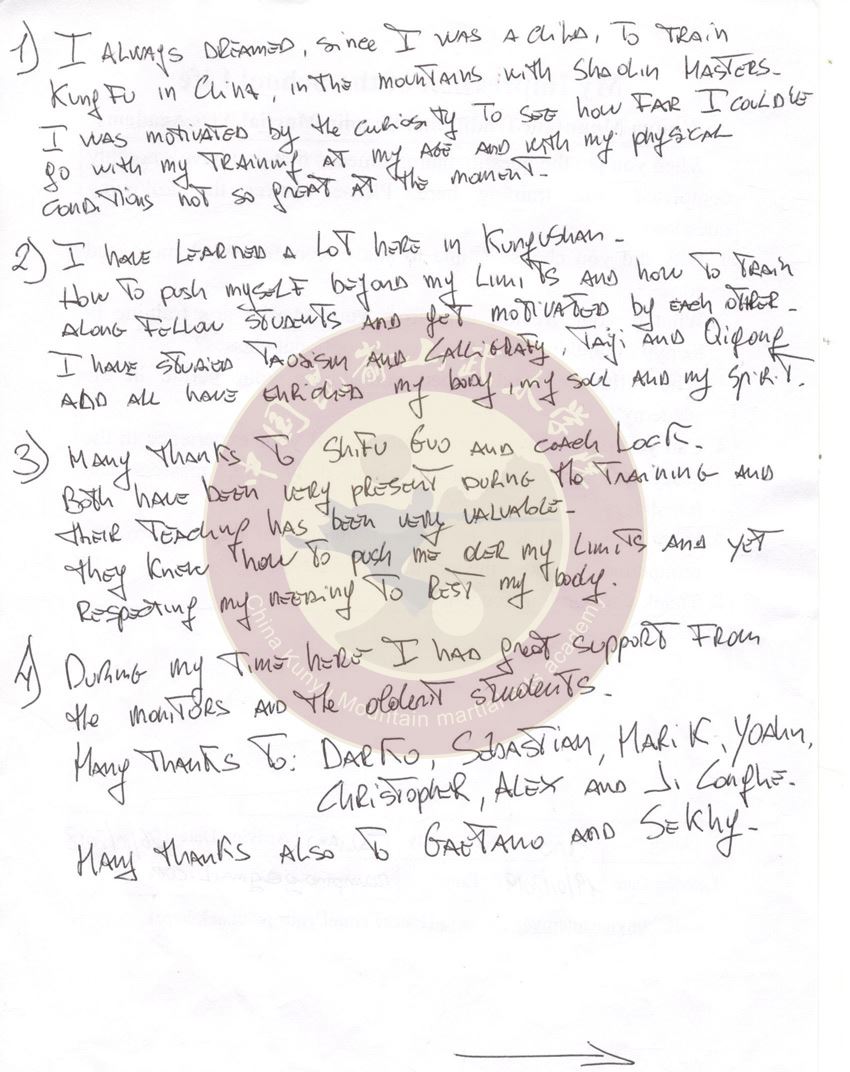 1) I ALWAYS DREAMED, since I WAS A child, TO TRAIN
Kung Fu in China, in the mountains with Shaolin Masters.
I WAS MOTIVATED by the curiosity TO SEE how FAR I COULD
go with my TRAINING AT my AGE AND with my physical
CONDITIONS not so great AT the moment.
2) I have LEARNED A LOT here in Kunyushan.
How TO push myself beyond my LIMITS AND how TO TRAIN
ALONG Fellow STUDENTS AND get MOTIVATED by each other.
I have STUDIED TAOISM AND CALLIGRAFY, Taiji AND Qigong
AND ALL have enriched my body, my soul AND my SPIRIT.
3) MANY Thanks TO Shifu Guo AND coach Lock.
Both have been very present DURING the TRAINING AND
their TEACHING has been very VALUABLE.
they knew how TO push me over my LIMITS AND YET
RESPECTING my NEEDING TO REST my body.
4) DURING my TIME here I had great support FROM
the MONITORS AND the oldent students.
Many Thanks To: DARKO, SEBASTIAN, MARIK, YOAHN,
ChRISTOPhER, ALEX AND Ji
MANY thanks ALSO TO GAETANO AND SEKhy.
中国昆嵛山武术学校
China Kunyu Mountain martial arts academy